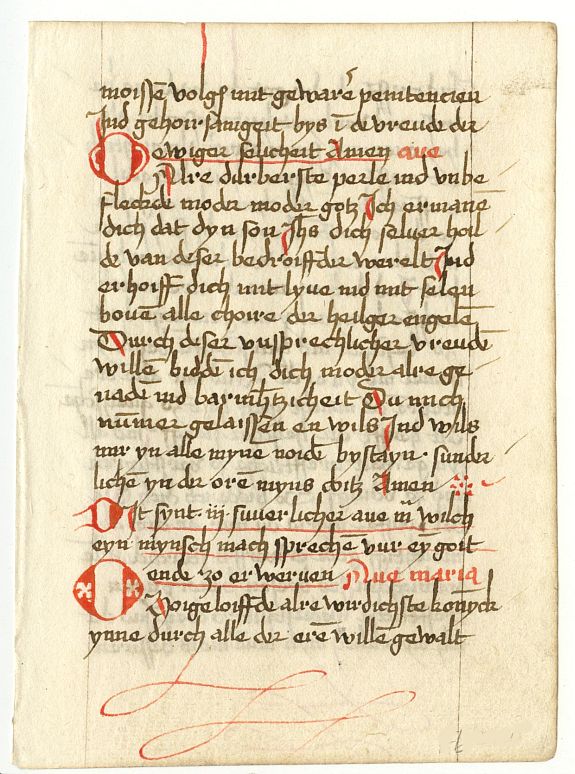 moissē volgē mit gewarē penitencien
Ind gehoirsamgeit bys ī de vreude der
ewiger selicheit Amen aue
O Alre durberste perle ind vnbe
fleckde moder moder gotz Ich ermanē
dich dat dyn son Jhs dich seluer hoil
de van deser bedroiffder werelt Ind
erhoiff dich mit lyue ind mit selen
bouē alle choire der heilger engelē
Durch deser vnsprechlicher vreudē
willē biddē ich dich moder alre ge
nadē ind barmhtzicheit Du mich
nūmer gelaissen en wils Ind wils
mir yn alle mynē noidē bystayn sunder
lichē yn der orē myns doitz Amen
Dit synt iij suuerlicher aue m wilch
eyn mynsch mach sprechē vur ey goit
ende zo erweruen Aue maria
O Zoigeloiffde alre wirdichste konyck
ynne durch alle der erē willē gewalt